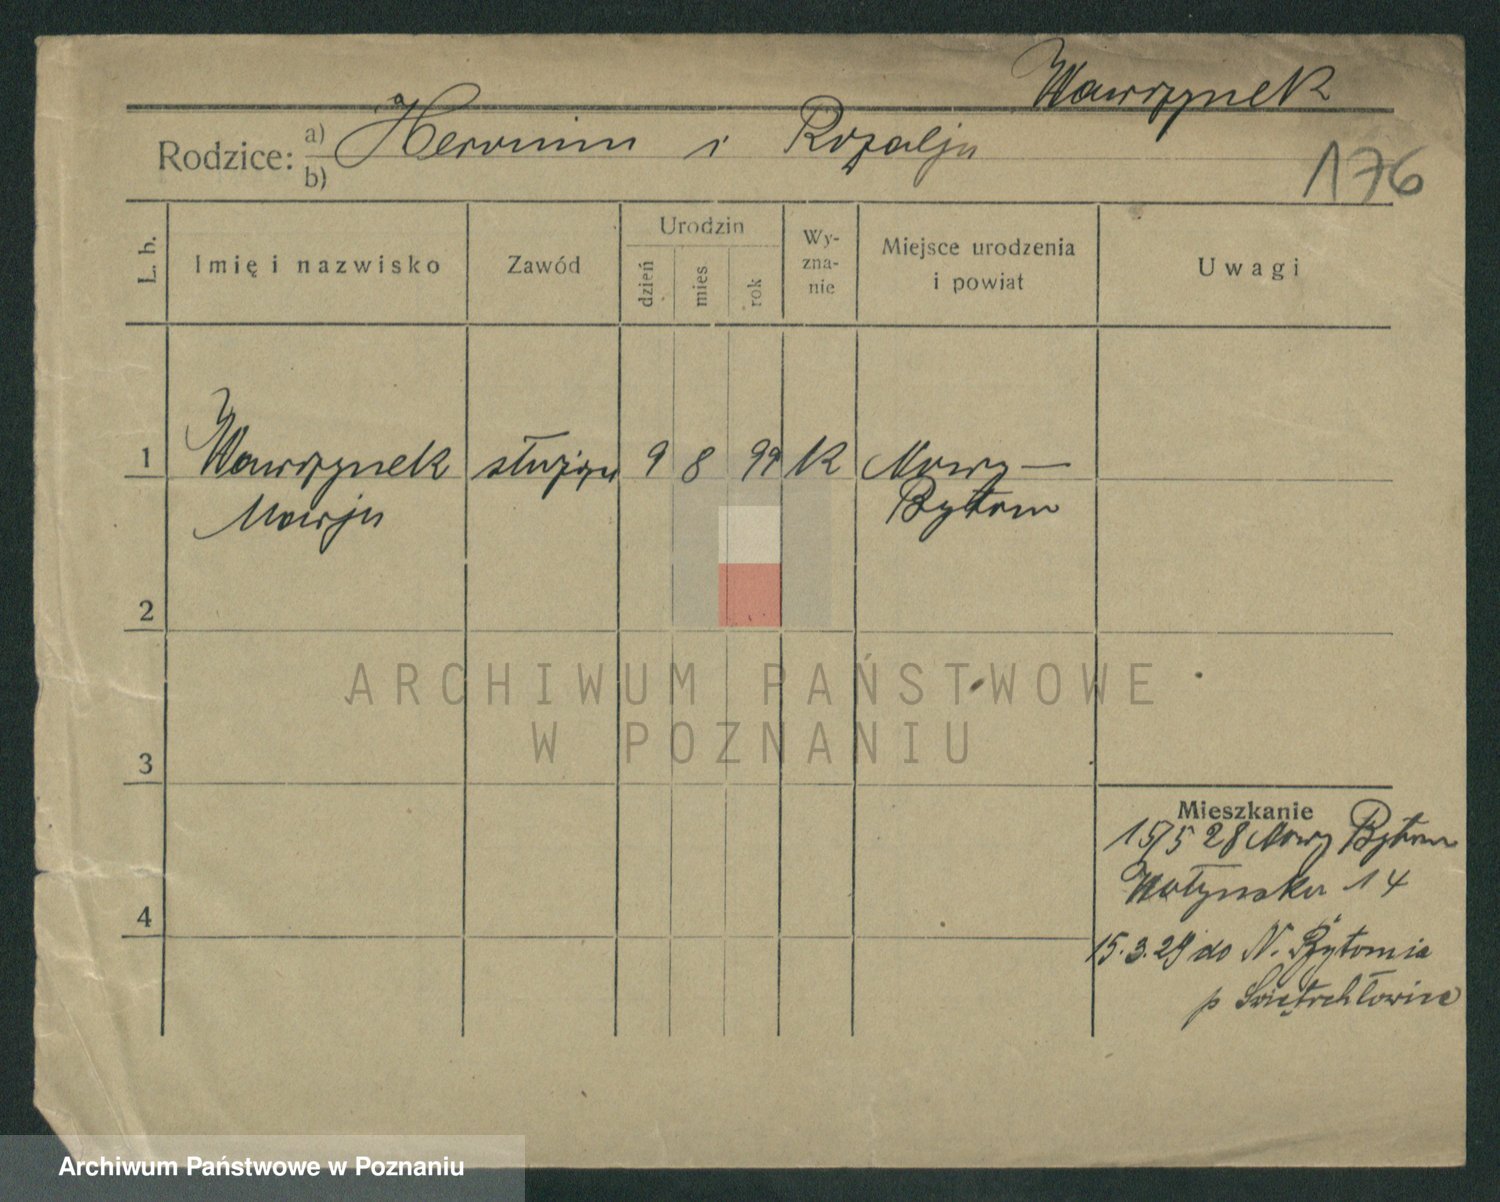 Wawrzynek
Rodzice: a) Heronim i Rozalja
b)
176
L. b.
Imię i nazwisko
Zawód
Urodzin
dzień
mies.
rok
Wy-
zna-
nie
Miejsce urodzenia
i powiat
Uwagi
1 Wawrzynek służąca 9 8 99 K Nowy —
Marja Bytom
2
3
4
Mieszkanie
15/5 28 Nowy Bytom
Wołynska 14
15.3.29 do N. Bytomia
p Świętochłowice
ARCHIWUM PAŃSTWOWE
W POZNANIU
Archiwum Państwowe w Poznaniu